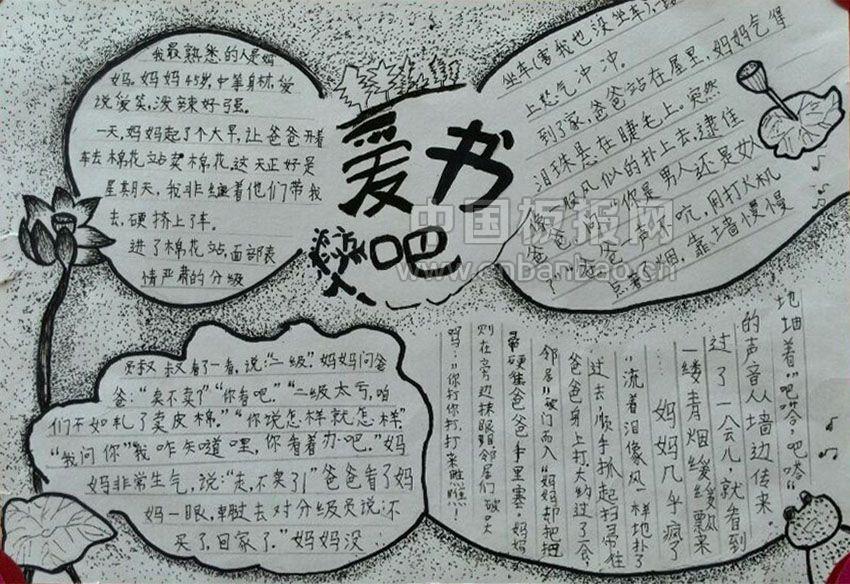 爱书吧
我最熟悉的人是妈
妈。妈妈45岁,中等身材,爱
说爱笑,泼辣好强。
一天,妈妈起了个大早,让爸爸开着
车去棉花站卖棉花。这天正好是
星期天,我非缠着他们带我
去,硬挤上了车。
进了棉花站,面部表
情严肃的分级
员叔叔看了一看,说:“二级”。妈妈问爸
爸:“卖不卖了”“你看吧。”“二级太亏,咱
们不如轧了卖皮棉。”“你说怎样就怎样”
“我问你”“我咋知道哩,你看着办吧。”妈
妈非常生气,说:“走,不卖了!”爸爸看了妈
妈一眼,过去对分级员说:不
买了,回家了。”妈妈没
坐车(害我也没坐车),一路
上怒气冲冲。
到了家,爸爸站在屋里,妈妈气得
泪珠悬在睫毛上。突然
像一股风似的扑上去,逮住
爸爸,问“你是男人还是女人
了”爸爸一声不吭,用打火机
点着了烟,靠墙慢慢
地抽着“吧嗒,吧嗒”
的声音从墙边传来。
过了一会儿,就看到
一缕青烟缓缓飘来
…妈妈几乎疯了
“流着泪像风一样地扑了
过去,顺手抓起扫帚往
爸爸身上打大约过了会,
邻居破门而入“妈妈却把把
最硬往爸爸手里塞,妈妈
则在旁边抹眼泪邻居们
吗:“你打你打,打来瞧瞧!
中国板报网
www.cnbanbao.cn